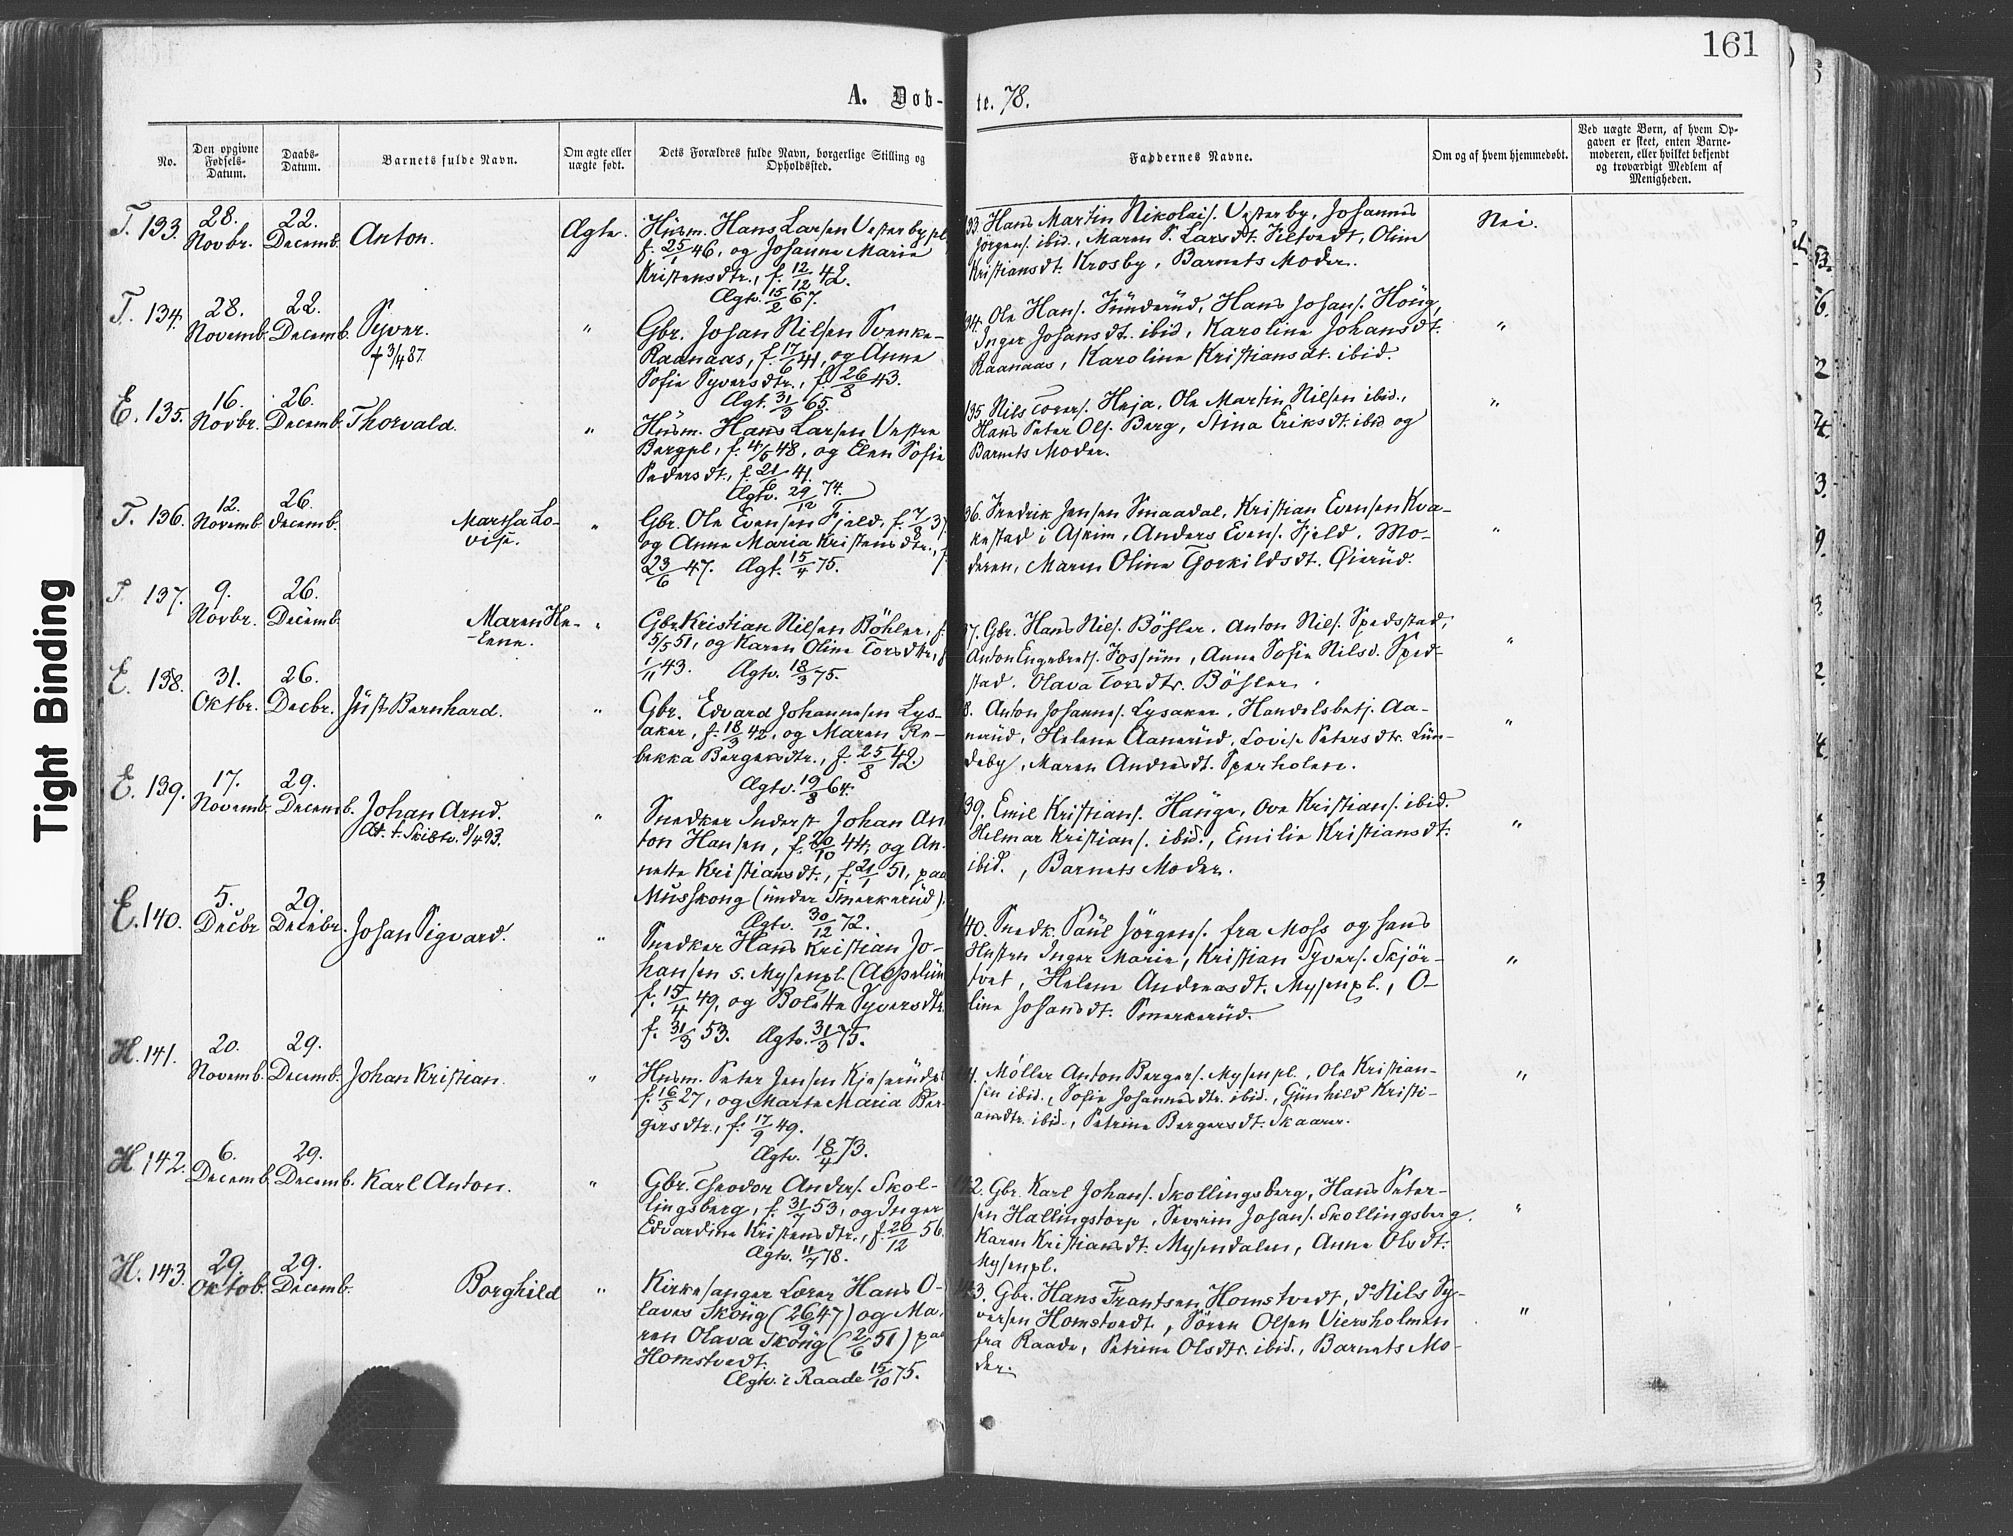 161
A. Døb-te. 78.
No.
Den opgivne Fødsels-Datum.
Daabs-Datum.
Barnets fulde Navn.
Om ægte eller uægte født.
Dets Forældres fulde Navn, borgerlige Stilling og Opholdssted.
Faddernes Navne.
Om og af hvem hjemmedøbt.
Ved uægte Børn, af hvem Op-
gaven er skeet, enten Barne-
moderen, eller hvilket bekjendt
og troværdigt Medlem af
Menigheden.
T. 133. 28. Novbr. 22. Decemb. Anton. Ægte.
Husm. Hans Larsen Vesterbypl
f. 25/1 46, og Johanne Marie
Kristensdtr., f. 12/12 42.
Ægtv. 15/2 67.
133. Hans Martin Nikolais. Vesterby, Johannes
Jörgens. ibid., Maren S. Larsdt. Tiltvedt, Oline
Kristiansdt. Krosby, Barnets Moder.
Nei.
T. 134. 28. Novemb. 22. Decemb. Syver. "
† 3/4 87.
Gbr. Johan Nilsen Svenke-
Raanaas, f. 17/6 41, og Anne
Sofie Syversdtr., f. 26/8 43.
Ægt. 31/3 65.
34. Ole Hans. Funderud, Hans Johans. Houg,
Inger Johansdt. ibid, Karoline Johansdt.
Raanaas, Karoline Kristiansdt. ibid.
"
E. 135. 16. Novbr. 26. Decemb. Thorvald. "
Husm. Hans Larsen Vestre
Bergpl, f. 4/6 48, og Elen Sofie
Pedersdt., f. 21/6 41.
Ægtv. 29/12 74.
135. Nils Tores. Heja. Ole Martin Nilsen ibid.,
Hans Peter Ols. Berg, Stina Eriksdt. ibid og
Barnets Moder.
"
T. 136. 12. Novemb. 26. Decemb. Martha Lo-
vise. "
Gbr. Ole Evensen Fjeld, f. 7/8 37,
og Anne Maria Kristensdtr., f.
23/6 47. Ægt. 15/4 75.
36. Fredrik Jensen Smaadal, Kristian Evensen Kva-
kestad i Askim, Anders Evens. Fjeld. Mo-
deren, Maren Oline Torkildsdt. Øierud.
"
T. 137. 9. Novbr. 26. Decemb. Maren He-
lene. "
Gbr. Kristian Nilsen Böhler, f.
5/5 51, og Karen Oline Torsdtr., f
1/11 43. Ægtv. 18/3 75.
37. Gbr. Hans Nils. Böhler. Anton Nils. Spedsstad,
Anton Engebrets. Fossum, Anne Sofie Nilsd. Sped-
stad. Olava Torsdtr. Böhler.
"
E. 138. 31. Oktbr. 26. Decbr. Just Bernhard. "
Gbr. Edvard Johannesen Lys-
aker, f. 18/3 42, og Maren Re-
bekka Bergersdtr., f. 25/8 42.
Ægtv. 19/8 64.
8. Anton Johannes. Lysaker, Handelsbetj. Aa-
nerud, Helene Aanerud, Lovise Petersdtr. Lun-
deby, Maren Andreasdt. Sperholen.
"
E. 139. 17. Novemb. 29. Decemb. Johan Arnd. "
At. t. Skistv. 8/4 93.
Snedker Inderst Johan An
ton Hansen, f. 20/10 44, og An-
nette Kristiansdt., f. 21/1 51, paa
Musskoug (under Smerkerud).
Ægtv. 30/12 72.
139. Emil Kristians. Hauger, Ove Kristians. ibid.
Helmar Kristians. ibid., Emilie Kristiansdt.
ibid., Barnets Moder.
"
E. 140. 5. Decbr 29. Decebr. Johan Sigvard. "
Snedker Hans Kristian Jo-
hansen s. Mysenpl. (Aspelun
f. 15/4 49, og Bolette Syversdtr.
f. 31/3 53. Ægtv. 31/3 75.
40. Snedk. Paul Jörgens. fra Moss og hans
Hustru Inger Marie, Kristian Syvers. Skjör-
tvet, Helene Andreasdt. Mysenpl., O-
line Johansdt. Smerkerud.
"
H. 141. 20. Novemb. 29. Decemb. Johan Kristian. "
Husm. Peter Jensen Kjeserudpl
f. 16/5 27, og Marte Maria Ber-
gersdtr., f. 17/9 49.
Ægtv. 18/4 73.
Møller Anton Bergers. Mysenpl., Ole Kristian-
sen ibid., Sofie Johannesdtr. ibid., Gunhild Kristi-
ansdtr. ibid., Petrine Bergersdt. Skaarer.
"
H. 142. 6. Decemb. 29. Decemb. Karl Anton. "
Gbr. Theodor Anders. Skol-
lingsberg, f. 31/7 53, og Inger
Edvardine Kristensdtr., f. 20/12 56.
Ægtv. 11/7 78.
142. Gbr. Karl Johans. Skollingsberg, Hans Peter-
sen Hallingstorp, Severin Johans. Skollingsberg.
Karen Kristiansdt. Mysendalen, Anne Olsdt.
Mysenpl.
"
H. 143. 29. Oktob. 29. Decemb. Borghild "
Kirkesanger Lærer Hans O-
laves Skoug (26/9 47) og Ma-
ren Olava Skoug (2/6 51) paa
Homstvedt.
Ægtv. i Raade 15/10 75.
143. Gbr. Hans Frantsen Homstvedt, do Nils Sy-
versen Homstvedt, Sören Olsen Viersholmen
fra Raade, Petrine Olsdtr. ibid., Barnets Mo-
der.
"
Tight Binding